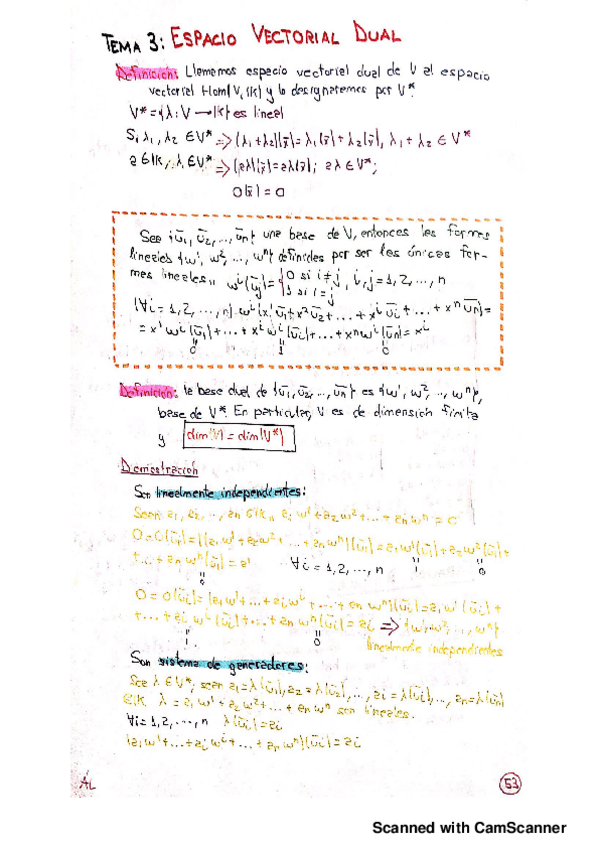 TEMA 3: ESPACIO VECTORIAL DUAL
Definición: Llamamos espacio vectorial dual de V al espacio
vectorial Hom(V, IK) y lo designaremos por V*.
V* = {λ: V → IK} es lineal
Si λ₁, λ₂ ∈ V* ⇒ (λ₁ + λ₂)(v̄) = λ₁(v̄) + λ₂(v̄), λ₁ + λ₂ ∈ V*
a ∈ IK, λ ∈ V* ⇒ (aλ)(v̄) = aλ(v̄); aλ ∈ V*;
0(x̄) = 0
Sea {ū₁, ū₂, ..., ūn} una base de V, entonces las formas
lineales {w¹, w², ..., wⁿ} definidas por ser las únicas for-
mas lineales,, wⁱ(ūj) = {0 si i ≠ j, 1 si i = j, i, j = 1, 2, ..., n
(∀i = 1, 2, ..., n) wⁱ(x¹ū₁ + x²ū₂ + ... + xⁱūi + ... + xⁿūn) =
= x¹wⁱ(ū₁) + ... + xⁱwⁱ(ūi) + ... + xⁿwⁱ(ūn) = xⁱ
0 1 0
Definición: la base dual de {ū₁, ū₂, ..., ūn} es {w¹, w², ..., wⁿ},
base de V*. En particular, V es de dimensión finita
y dim(V) = dim(V*)
Demostración
Son linealmente independientes:
Sean a₁, a₂, ..., an ∈ IK,, a₁w¹ + a₂w² + ... + anwⁿ = 0
0 = 0(ū₁) = (a₁w¹ + a₂w² + ... + anwⁿ)(ū₁) = a₁w¹(ū₁) + a₂w²(ū₁) +
+ ... + anwⁿ(ū₁) = a¹ ∀i = 1, 2, ..., n
0 1 0
0 = 0(ūi) = (a₁w¹ + ... + aiwⁱ + ... + anwⁿ)(ūi) = a₁w¹(ūi) +
+ ... + aiwⁱ(ūi) + ... + anwⁿ(ūi) = ai ⇒ {w¹, w², ..., wⁿ}
1 0 linealmente independientes
Son sistema de generadores:
Sea λ ∈ V*, sean a₁ = λ(ū₁), a₂ = λ(ū₂), ..., ai = λ(ūi), ..., an = λ(ūn)
∈ IK λ = a₁w¹ + a₂w² + ... + anwⁿ son lineales.
∀i = 1, 2, ..., n λ(ūi) = ai
(a₁w¹ + ... + aiwⁱ + ... + anwⁿ)(ūi) = ai
ÁL
53
Scanned with CamScanner